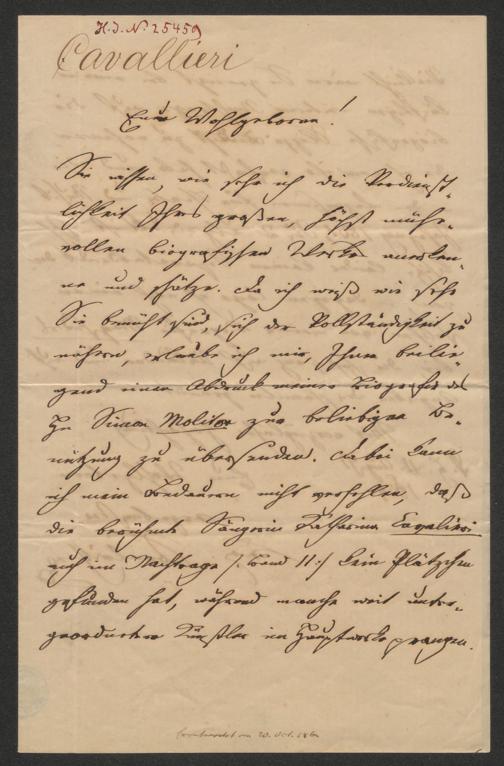 H.I.N. 25459
Cavallieri
Euer Wohlgeboren!
Sie wissen, wie sehr ich die Verdienst-
lichkeit Ihres großen, höchst mühe-
vollen biografischen Werkes anerken-
ne und schätze. Da ich weiß wie sehr
Sie bemüht sind, sich der Vollständigkeit zu
nähern, erlaube ich mir, Ihnen beilie-
gend einen Abdruck meiner Biografie des
Simon Molitor zur beliebigen Be-
nützung zu übersenden. Dabei kann
ich mein Bedauern nicht verhehlen, daß
die berühmte Sängerin Katharina Cavalieri
auch im Nachtrage /: Band 11 :/ kein Plätzchen
gefunden hat, während manche weit unter-
geordnetere Künstler im Hauptwerke prangen.